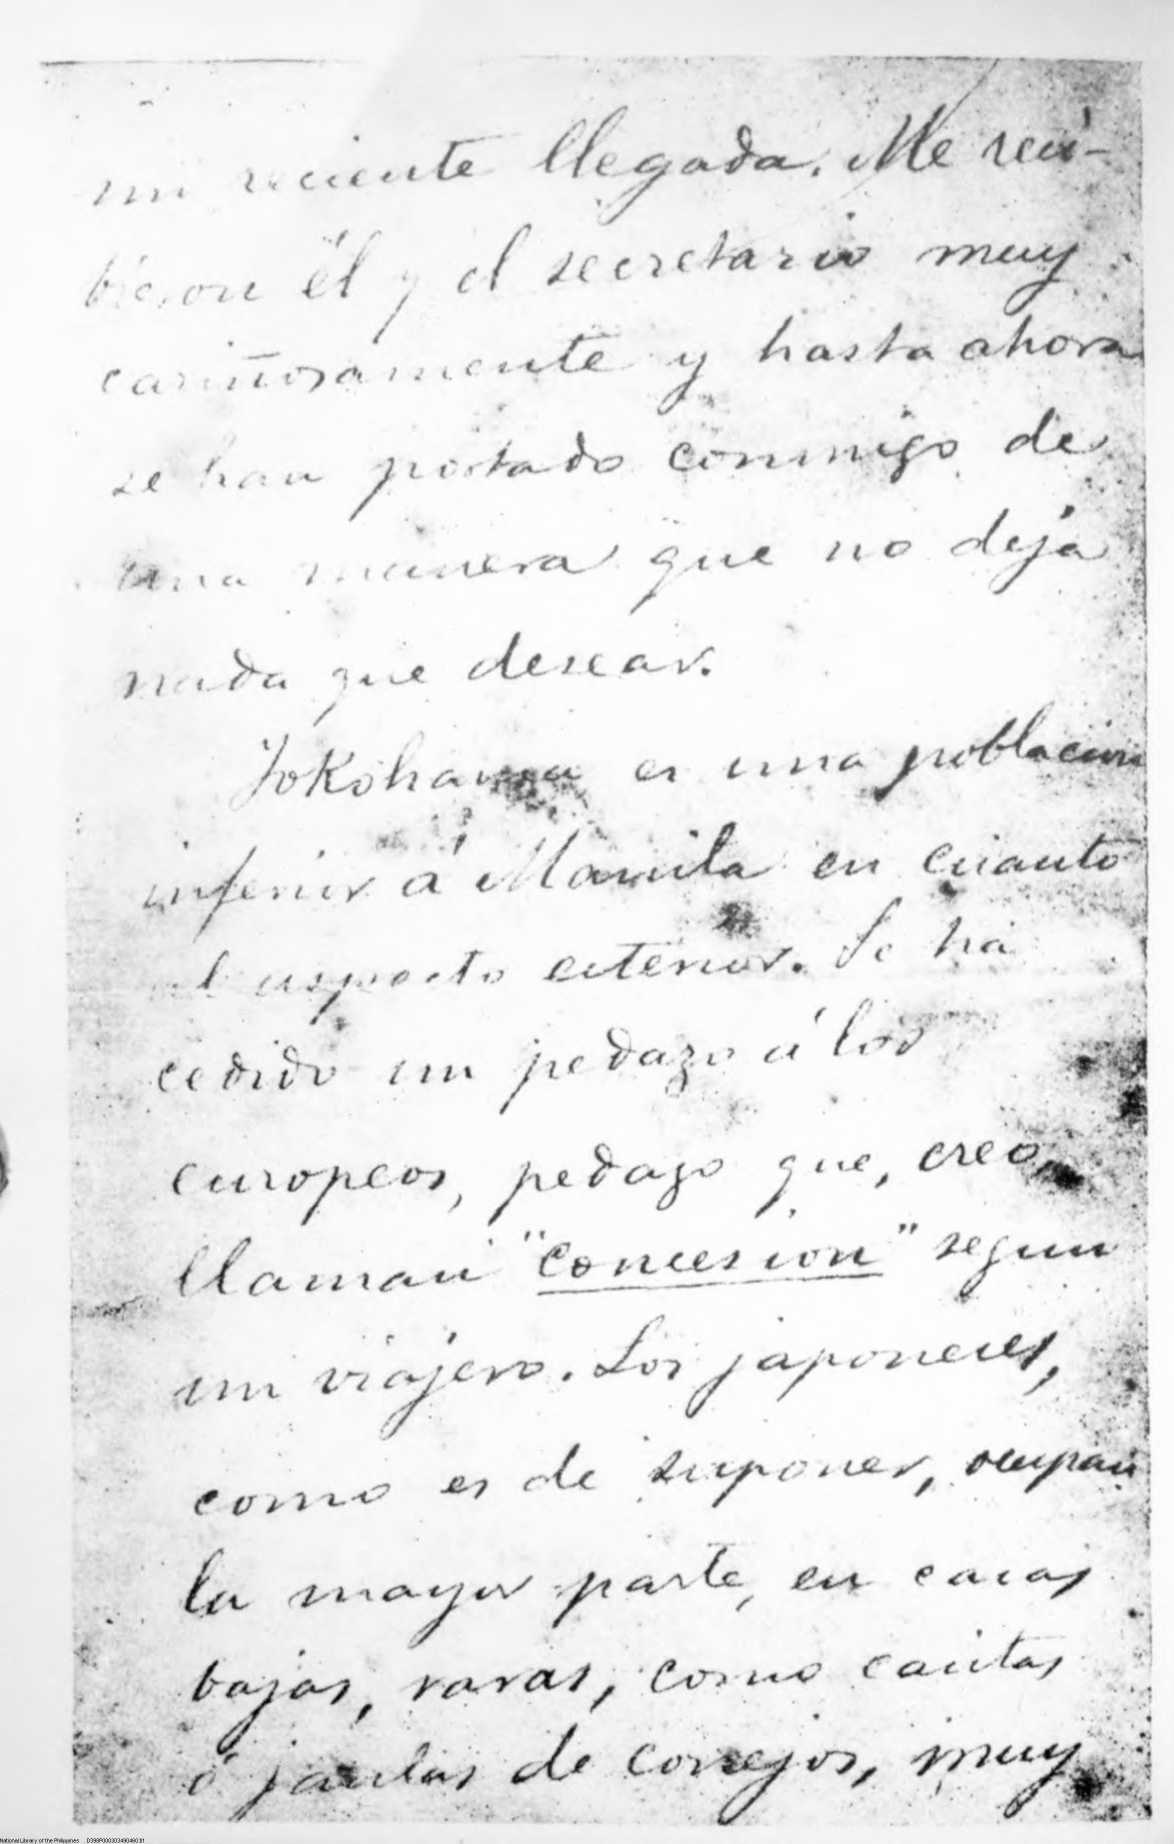 mi reciente llegada. Me reci-
bieron él y el secretario muy
cariñosamente y hasta ahora
se han portado conmigo de
una manera que no deja
nada que desear.
Yokohama es una poblacion
inferior á Manila en cuanto
al aspecto exterior. Se ha
cedido un pedazo á los
europeos, pedazo que, creo,
llaman "concesion" segun
un viajero. Los japoneses,
como es de suponer, ocupan
la mayor parte, en casas
bajas, raras, como casitas
ó jaulas de conejos, muy
National Library of the Philippines